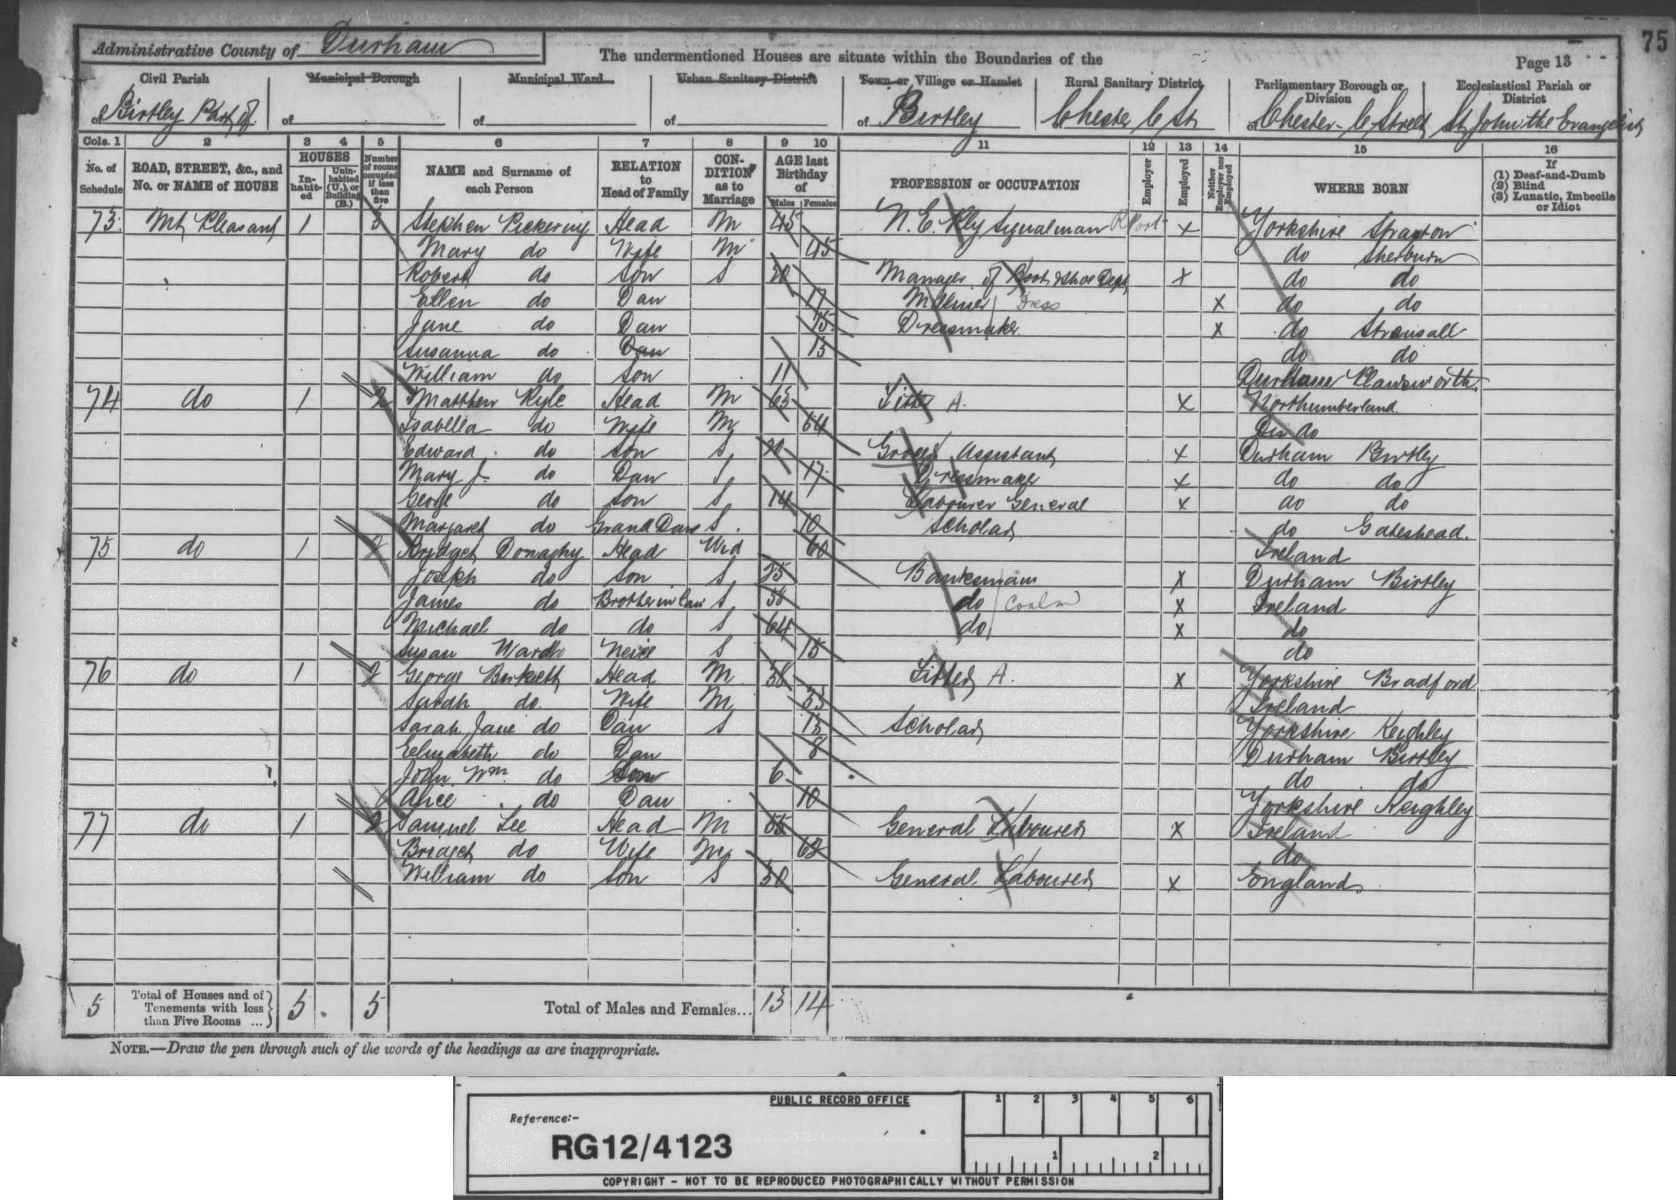 75
Administrative County of Durham
The undermentioned Houses are situate within the Boundaries of the
Page 13
Civil Parish
Municipal Borough
Municipal Ward
Urban Sanitary District
Town or Village or Hamlet
Rural Sanitary District
Parliamentary Borough or Division
Ecclesiastical Parish or District
of Birtley Part of
of
of
of
of Birtley
Chester le St
of Chester-le-Street
St John the Evangelist
Cols. 1 2 3 4 5 6 7 8 9 10 11 12 13 14 15 16
No. of Schedule
ROAD, STREET, &c., and No. or NAME of HOUSE
HOUSES
In-habit-ed
Unin-habited (U.), or Building (B.)
Number of rooms occupied if less than five
NAME and Surname of each Person
RELATION to Head of Family
CON-DITION as to Marriage
AGE last Birthday of
Males Females
PROFESSION or OCCUPATION
Employer
Employed
Neither Employer nor Employed
WHERE BORN
If
(1) Deaf-and-Dumb
(2) Blind
(3) Lunatic, Imbecile or Idiot
73 Mt Pleasant 1 3 Stephen Pickering Head M 45 N. E. Rly Signalman X Yorkshire
Mary do Wife M 45 do Sherburn
Robert do Son S 20 Manager of Boot & Shoe Dept X do do
Ellen do Dau 17 Milliner Dress X do do
Jane do Dau 15 Dressmaker X do Strensall
Susanna do Dau 13 do do
William do Son 11 Durham Plawsworth
74 do 1 2 Matthew Kyle Head M 65 Fitter A. X Northumberland
Isabella do Wife M 64 do
Edward do Son S 20 Grocer's Assistant X Durham Birtley
Mary J. do Dau S 17 Dressmaker X do do
George do Son S 14 Labourer General X do do
Margaret do Grand Dau S 10 Scholar do Gateshead.
75 do 1 2 Bridget Donaghy Head Wid 60 Ireland
Joseph do Son S 25 Banksman X Durham Birtley
James do Brother in law S 58 do X Ireland
Michael do do S 64 do X do
Susan Ward Neice S 15 do
76 do 1 2 George Birkett Head M 38 Fitter A. X Yorkshire Bradford
Sarah do Wife M 33 Ireland
Sarah Jane do Dau S 13 Scholar Yorkshire Keighley
Elizabeth do Dau 8 Durham Birtley
John Wm do Son 6 do do
Alice do Dau 10 Yorkshire Keighley
77 do 1 2 Samuel Lee Head M General Labourer X Ireland
Bridget do Wife M 62 do
William do Son S 30 General Labourer X England
5 Total of Houses and of Tenements with less than Five Rooms ... 5 5 Total of Males and Females... 13 14
NOTE.—Draw the pen through such of the words of the headings as are inappropriate.
PUBLIC RECORD OFFICE
1 2 3 4 5 6
Reference:-
RG12/4123
1 2
COPYRIGHT - NOT TO BE REPRODUCED PHOTOGRAPHICALLY WITHOUT PERMISSION